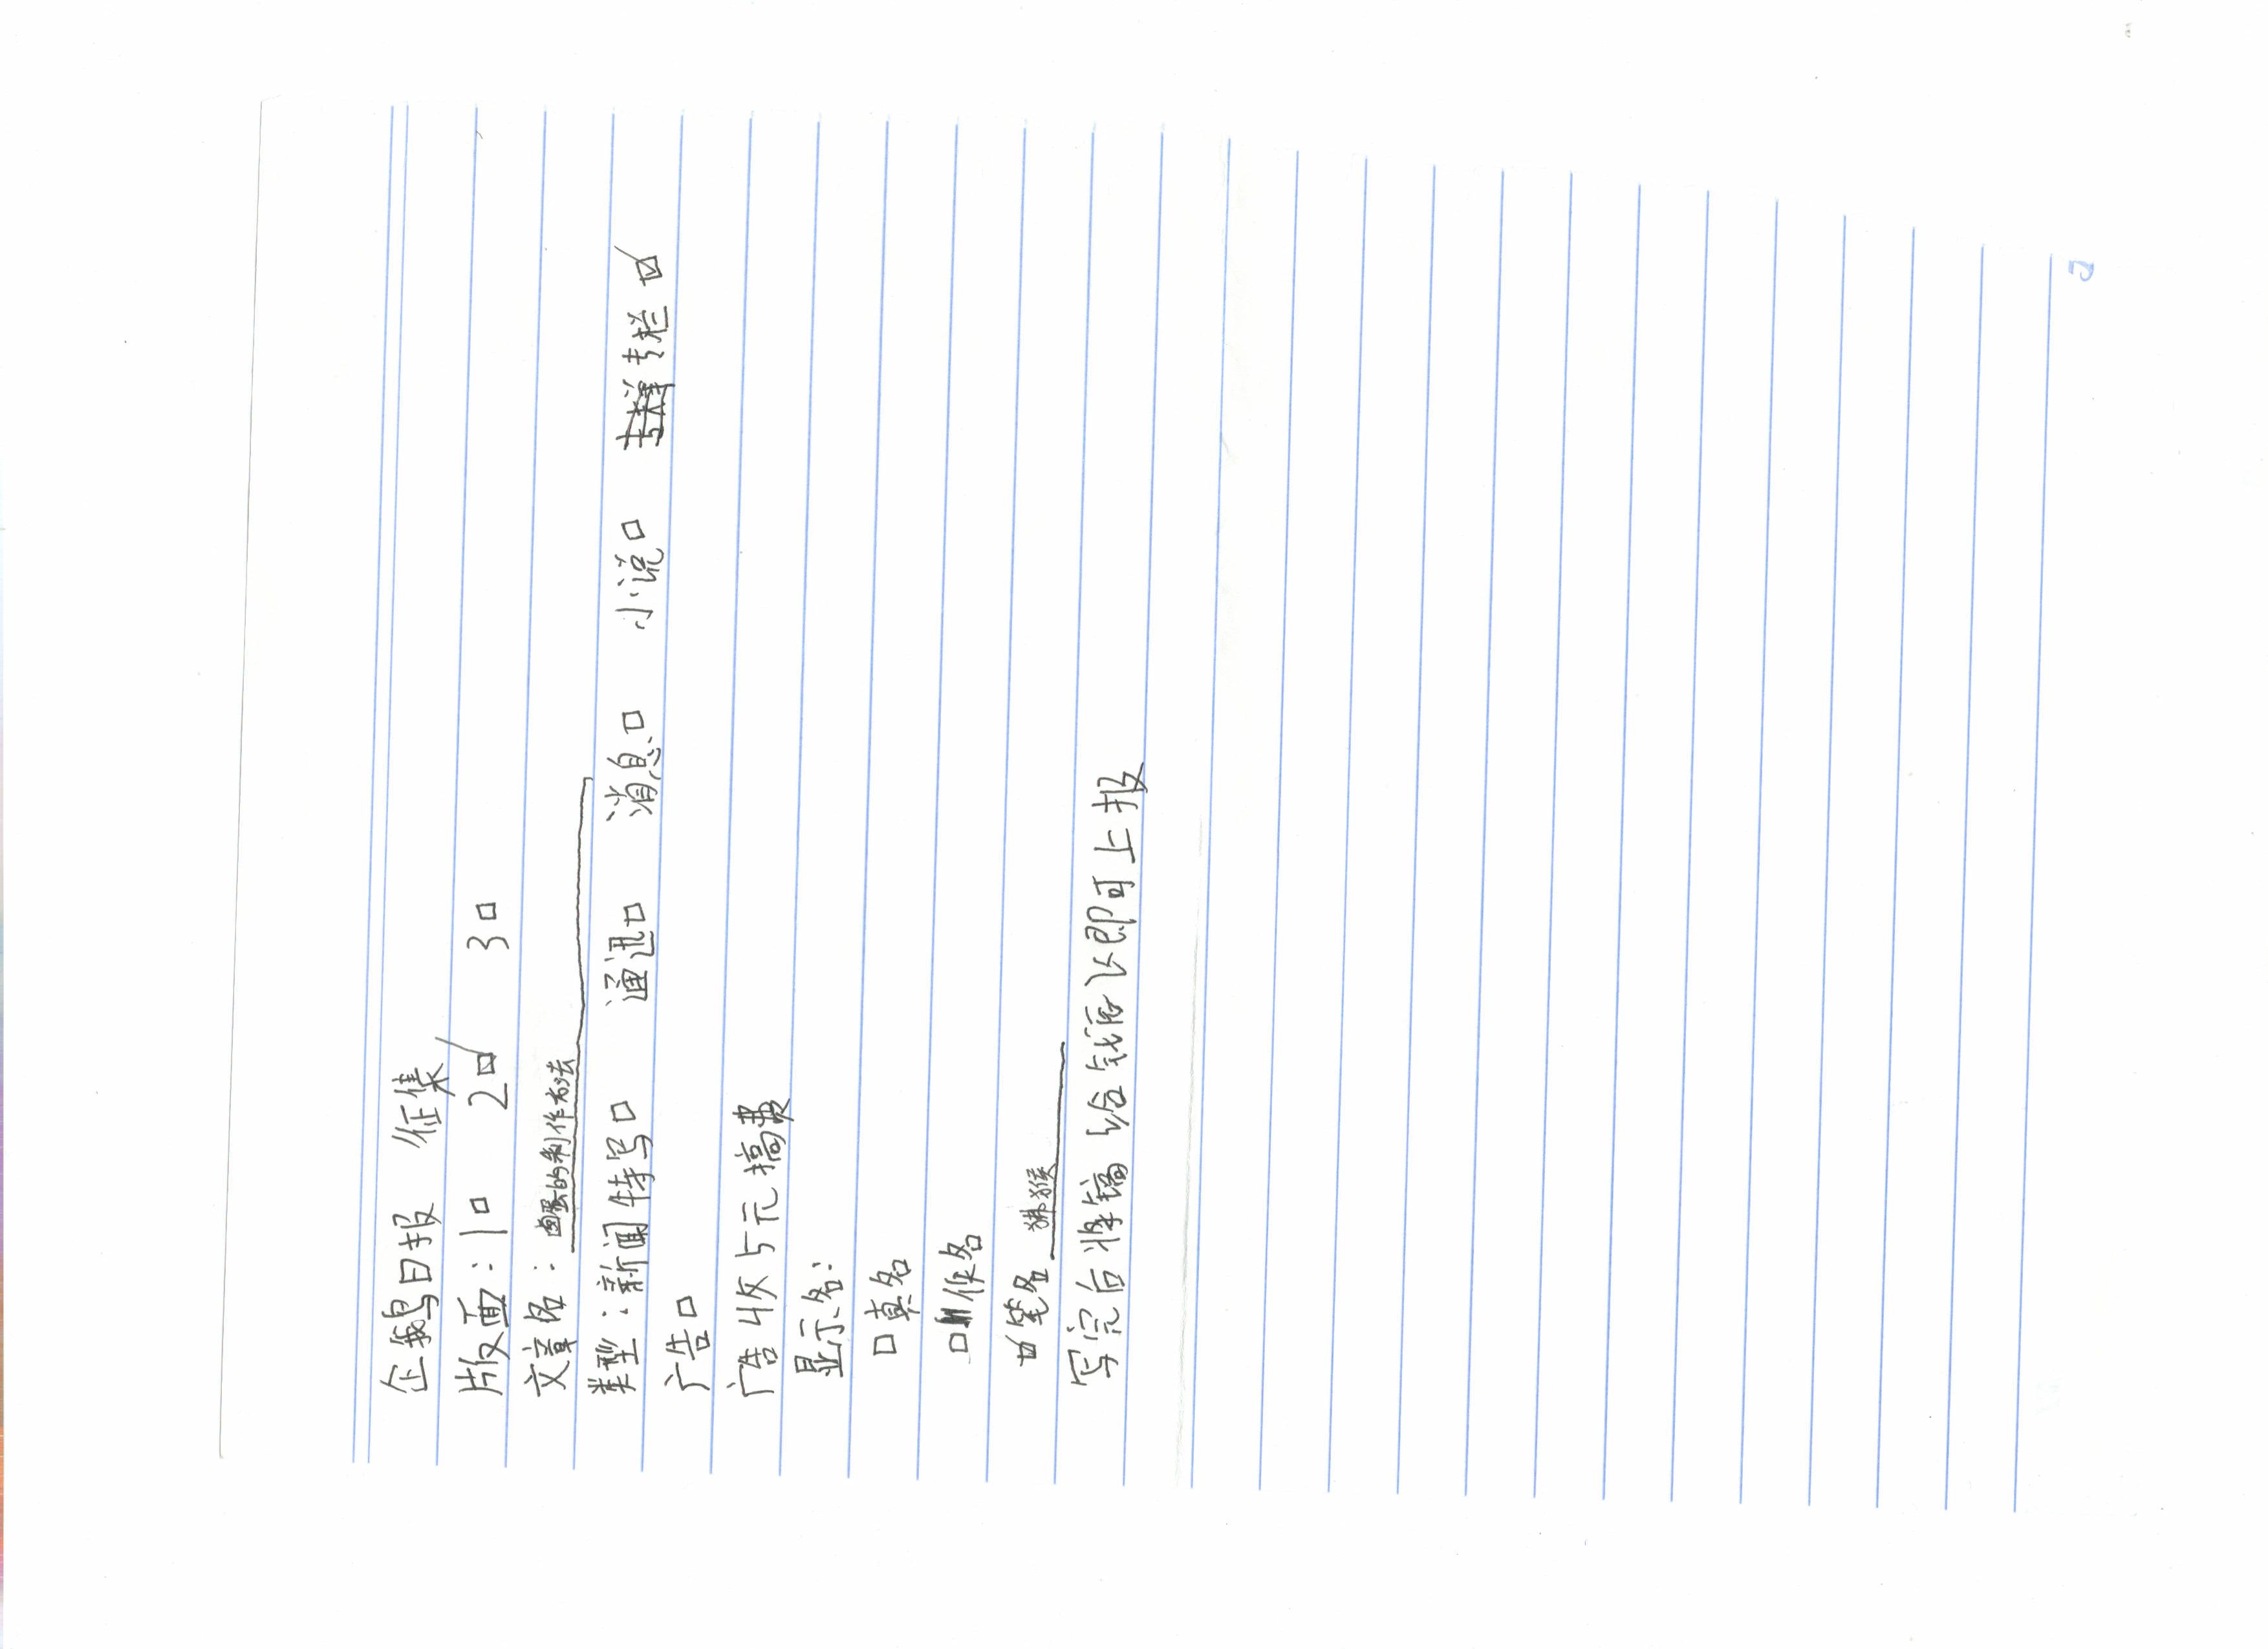 企鹅日报 征集
版面：1□ 2☑ 3□
文章名：卤蛋的制作方法
类型：新闻特写□ 通讯□ 消息□ 小说□ 专栏☑
广告□
广告收5元搞费
显示名：
□真名
□作名
☑笔名 狒猴
写完后将稿给钱源公即可上报